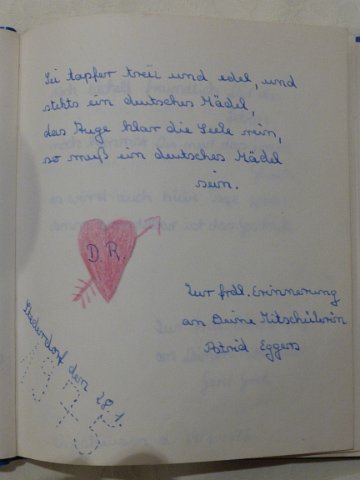 Sei tapfer treu und edel, und
stehts ein deutsches Mädel,
das Auge klar die Seele rein,
so muß ein deutsches Mädel
sein.
D. R.
Zur frdl. Erinnerung
an Deine Mitschülerin
Astrid Eggers
den 28. 1.